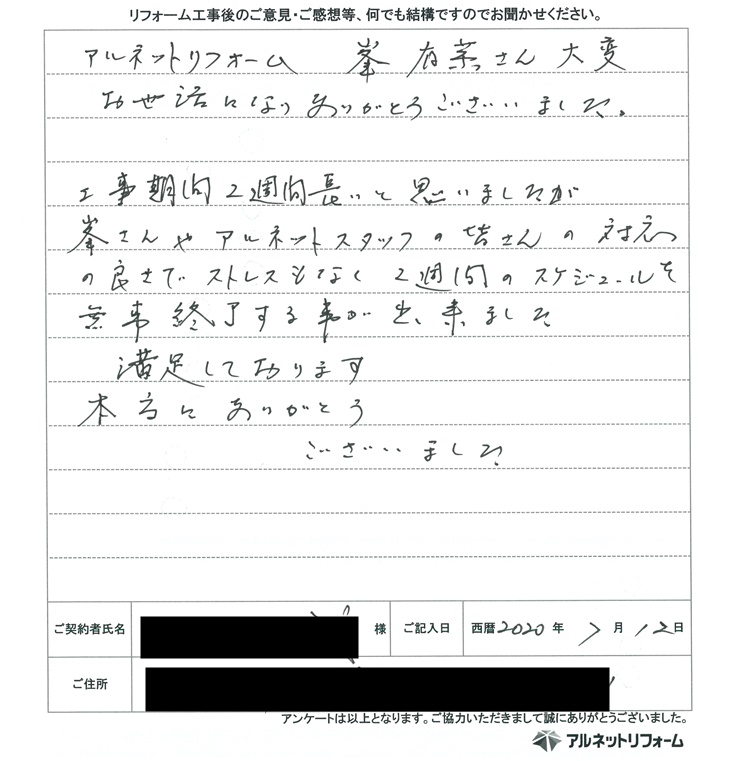 リフォーム工事後のご意見・ご感想等、何でも結構ですのでお聞かせください。
アルネットリフォーム 峯 有菜さん 大変
お世話になりありがとうございました。
工事期間2週間長いと思いましたが
峯さんやアルネットスタッフの皆さんの対応
の良さでストレスもなく2週間のスケジュールを
無事終了する事が出来ました
満足しております
本当にありがとう
ございました
ご契約者氏名 様 ご記入日 西暦2020年 7月12日
ご住所
アンケートは以上となります。ご協力いただきまして誠にありがとうございました。
アルネットリフォーム